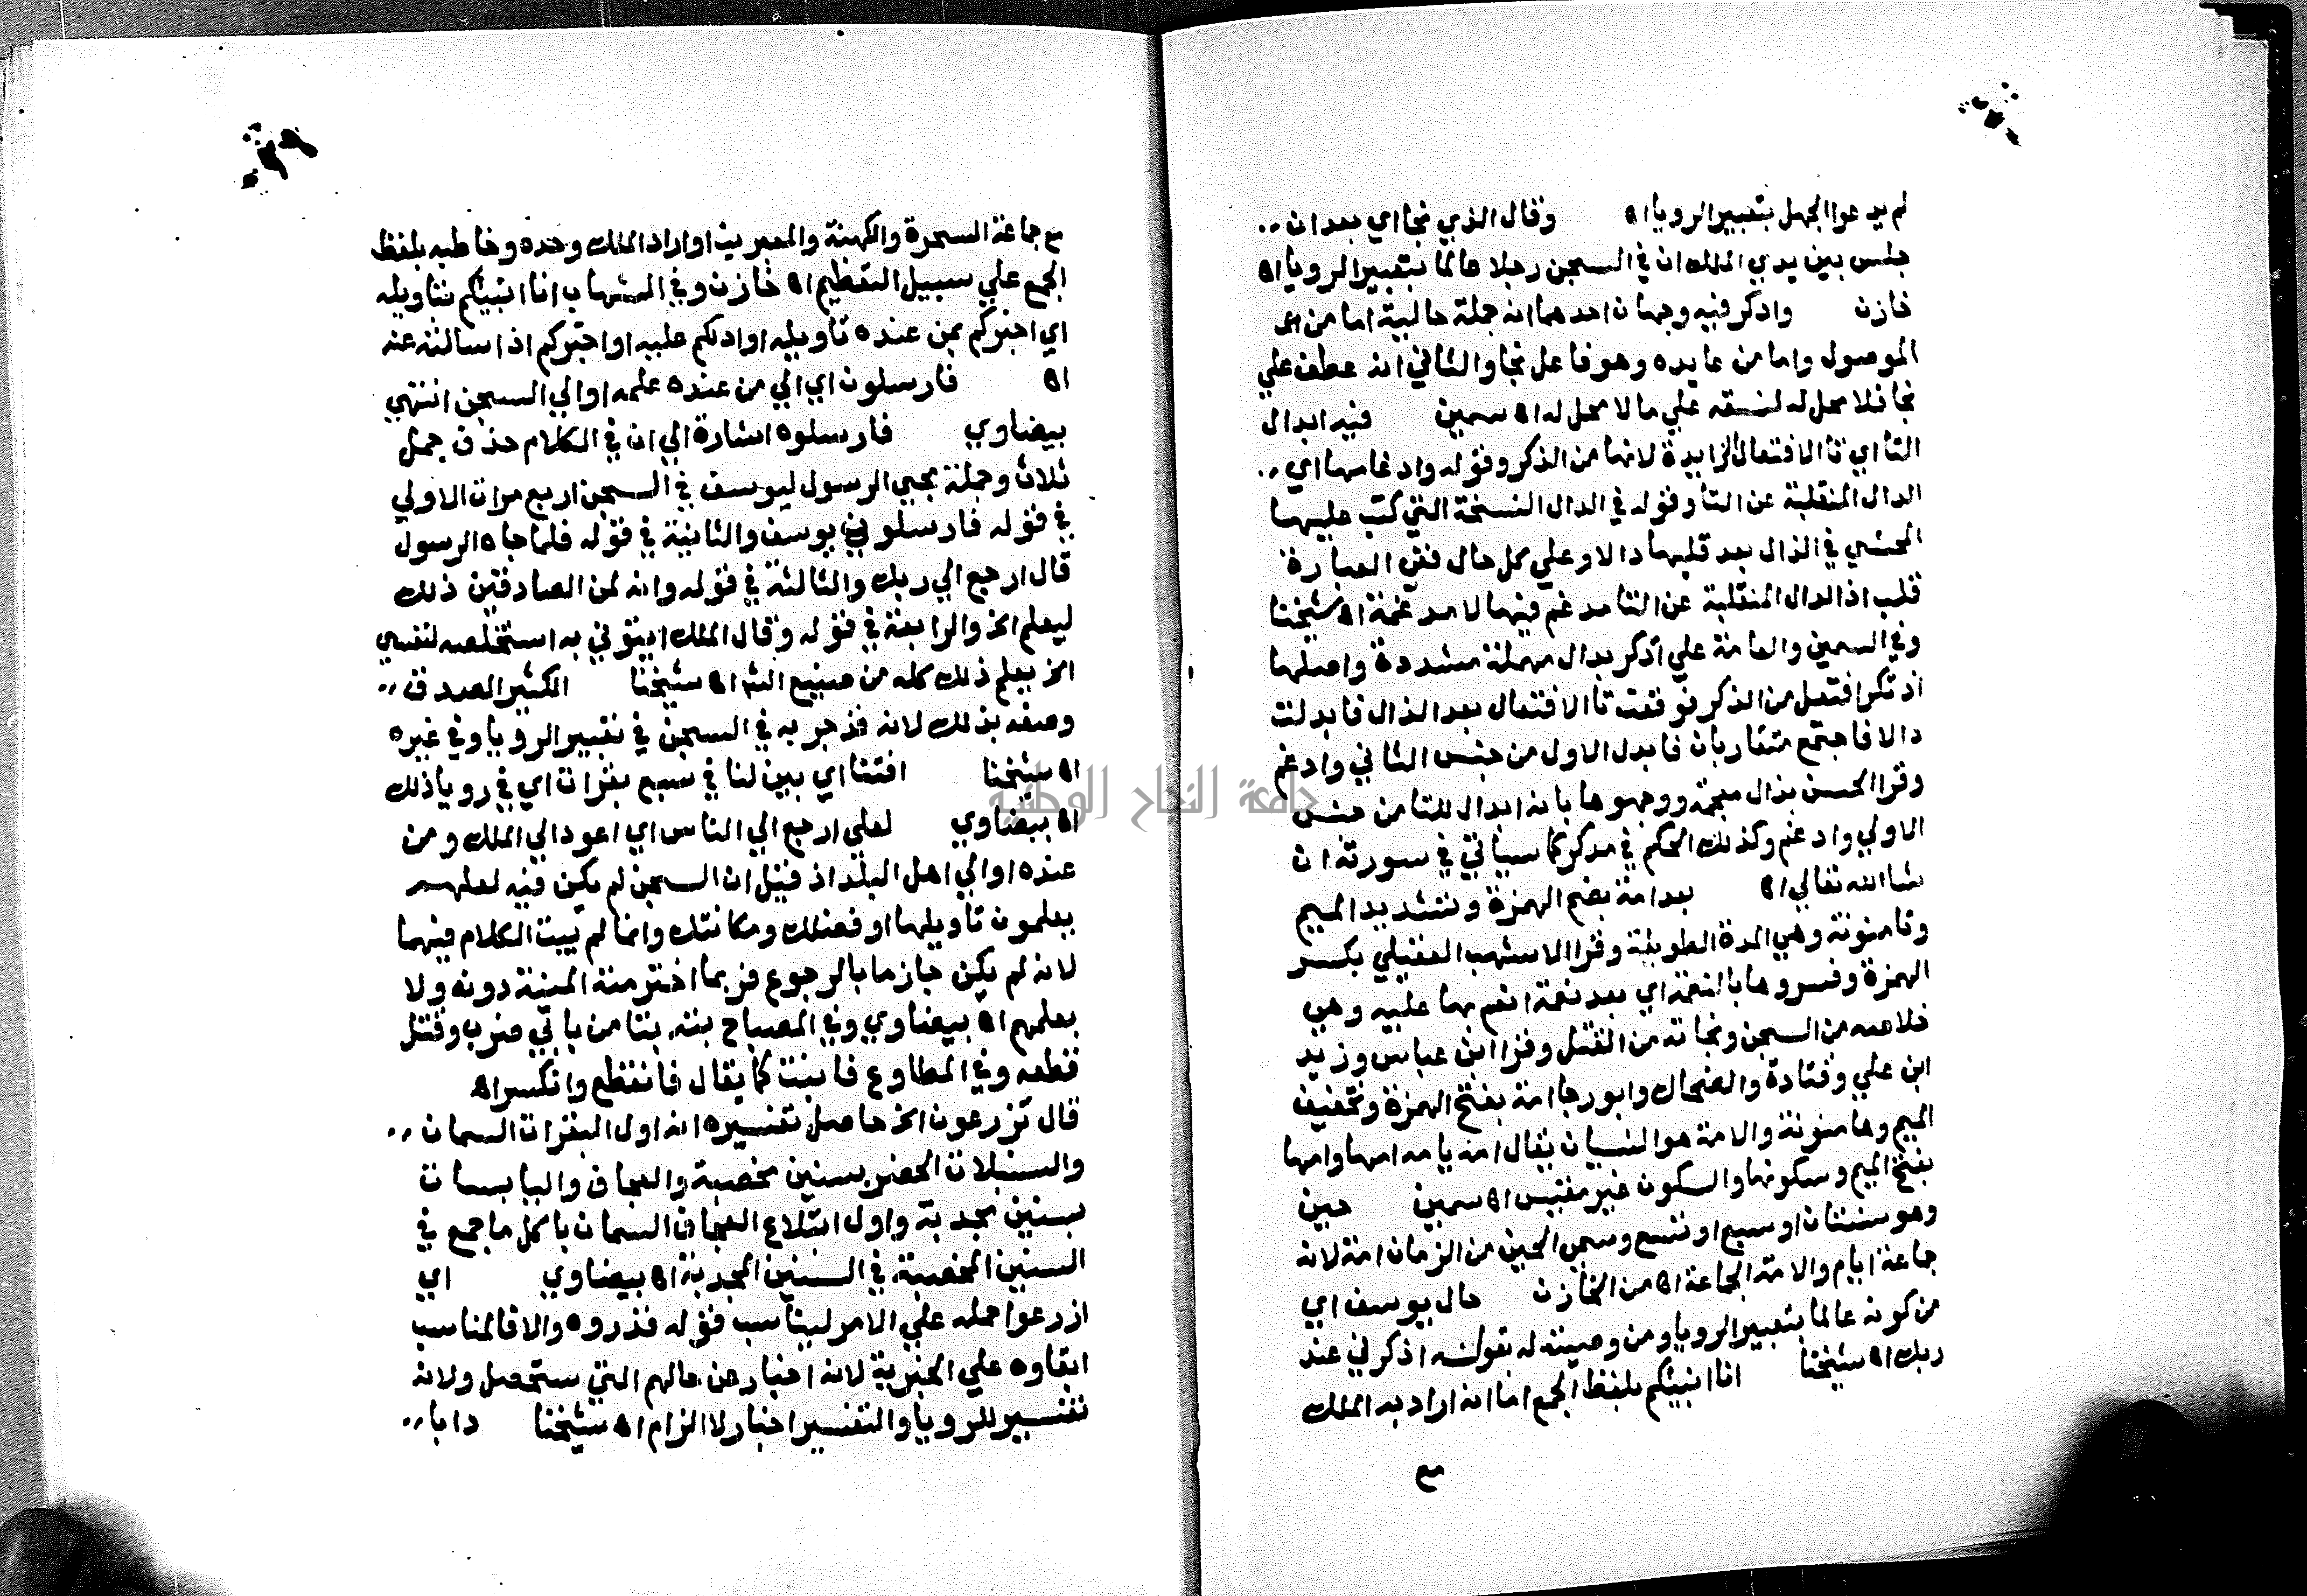 لم يدعوا الجهل بتعبير الرويا اه وقال الذي نجا اي بعد ان
جلس بين يدي الملك ان في السجن رجلا عالما بتعبير الرويا اه
خازن وادكر فيه وجهان احدهما انه جملة حالية اما من
الموصول واما من عايده وهو فاعل نجا والثاني انه عطف علي
نجا فلا محل له لنسقه علي ما لا محل له اه سمين فيه ابدال
التا اي تا الافتعال الزايدة لانها من الذكر وقوله وادغامها اي
الدال المنقلبة عن التا وقوله في الدال النسخة التي كتب عليها
المحشي في الذال بعد قلبها دالا وعلي كل حال ففي العبارة
قلب اذ الدال المنقلبة عن التا مدغم فيها لا مدغمة اه شيخنا
وفي السمين والعامة علي ادكر بدال مهملة مشددة واصلها
اذتكر افتعل من الذكر فوقعت تا الافتعال بعد الذال فابدلت
دالا فاجتمع متقاربان فابدل الاول من جنس الثاني وادغم
وقرا الحسن بذال معجمة ووجهوها بانه ابدال للتا من جنس
الاولي وادغم وكذلك الحكم في مدكر كما سياتي في سورته ان
شا الله تعالي اه بعد امة بضم الهمزة وتشديد الميم
وتا منونة وهي المدة الطويلة وقرا الاشهب العقيلي بكسر
الهمزة وفسروها بالنعمة اي بعد نعمة انعم بها عليه وهي
خلاصه من السجن ونجاته من القتل وقرا ابن عباس وزيد
ابن علي وقتادة والضحاك وابو رجا امة بفتح الهمزة وتخفيف
الميم وها منونة والامة هو النسيان يقال امه يامه امها وامها
بفتح الميم وسكونها والسكون غير مقيس اه سمين حين
وهو سنتان او سبع او تسع وسمي الحين من الزمان امة لانه
جماعة ايام والامة الجماعة اه من الخازن حال يوسف اي
من كونه عالما بتعبير الرويا ومن وصيته له بقوله اذكرني عند
ربك اه شيخنا انا انبيكم بلفظ الجمع اما انه اراد به الملك
مع
مع جماعة السحرة والكهنة والمعبرين او اراد الملك وحده وخاطبه بلفظ
الجمع علي سبيل التعظيم اه خازن وفي الشهاب انا انبيكم بتاويله
اي اخبركم بمن عنده تاويله او ادلكم عليه او اخبركم اذا سالته عنه
اه فارسلون اي الي من عنده علمه او الي السجن انتهي
بيضاوي فارسلوه اشارة الي ان في الكلام حذف جمل
ثلاث وجملة مجي الرسول ليوسف في السجن اربع مرات الاولي
في قوله فارسلون يوسف والثانية في قوله فلما جاه الرسول
قال ارجع الي ربك والثالثة في قوله وانه لمن الصادقين ذلك
ليعلم الخ والرابعة في قوله وقال الملك ايتوني به استخلصه لنفسي
الخ يعلم ذلك كله من صنيع الش اه شيخنا الكثير الصدق
وصفه بذلك لانه قد جربه في السجن في تعبير الرويا وفي غيره
اه شيخنا افتنا اي بين لنا في سبع بقرات اي في رويا ذلك
اه بيضاوي لعلي ارجع الي الناس اي اعود الي الملك ومن
عنده او الي اهل البلد اذ قيل ان السجن لم يكن فيه لعلهم
يعلمون تاويلها او فضلك ومكانتك وانما لم يبت الكلام فيهما
لانه لم يكن جازما بالرجوع فربما اخترمته المنية دونه ولا
بعلمهم اه بيضاوي وفي المصباح بته بتا من بابي ضرب وقتل
قطعه وفي المطاوع فانبت كما يقال فانقطع وانكسر اه
قال تزرعون الخ حاصل تفسيره انه اول البقرات السمان
والسنبلات الخضر بسنين مخصبة والعجاف واليابسات
بسنين مجدبة واول ابتلاع العجاف السمان باكل ما جمع في
السنين المخصبة في السنين المجدبة اه بيضاوي اي
ازرعوا حمله علي الامر ليناسب قوله فذروه والا فالمناسب
ابقاوه علي الخبرية لانه اخبار عن حالهم التي ستحصل ولانه
تفسير للرويا والتفسير اخبار لا الزام اه شيخنا دابا
جامعة النجاح الوطنية